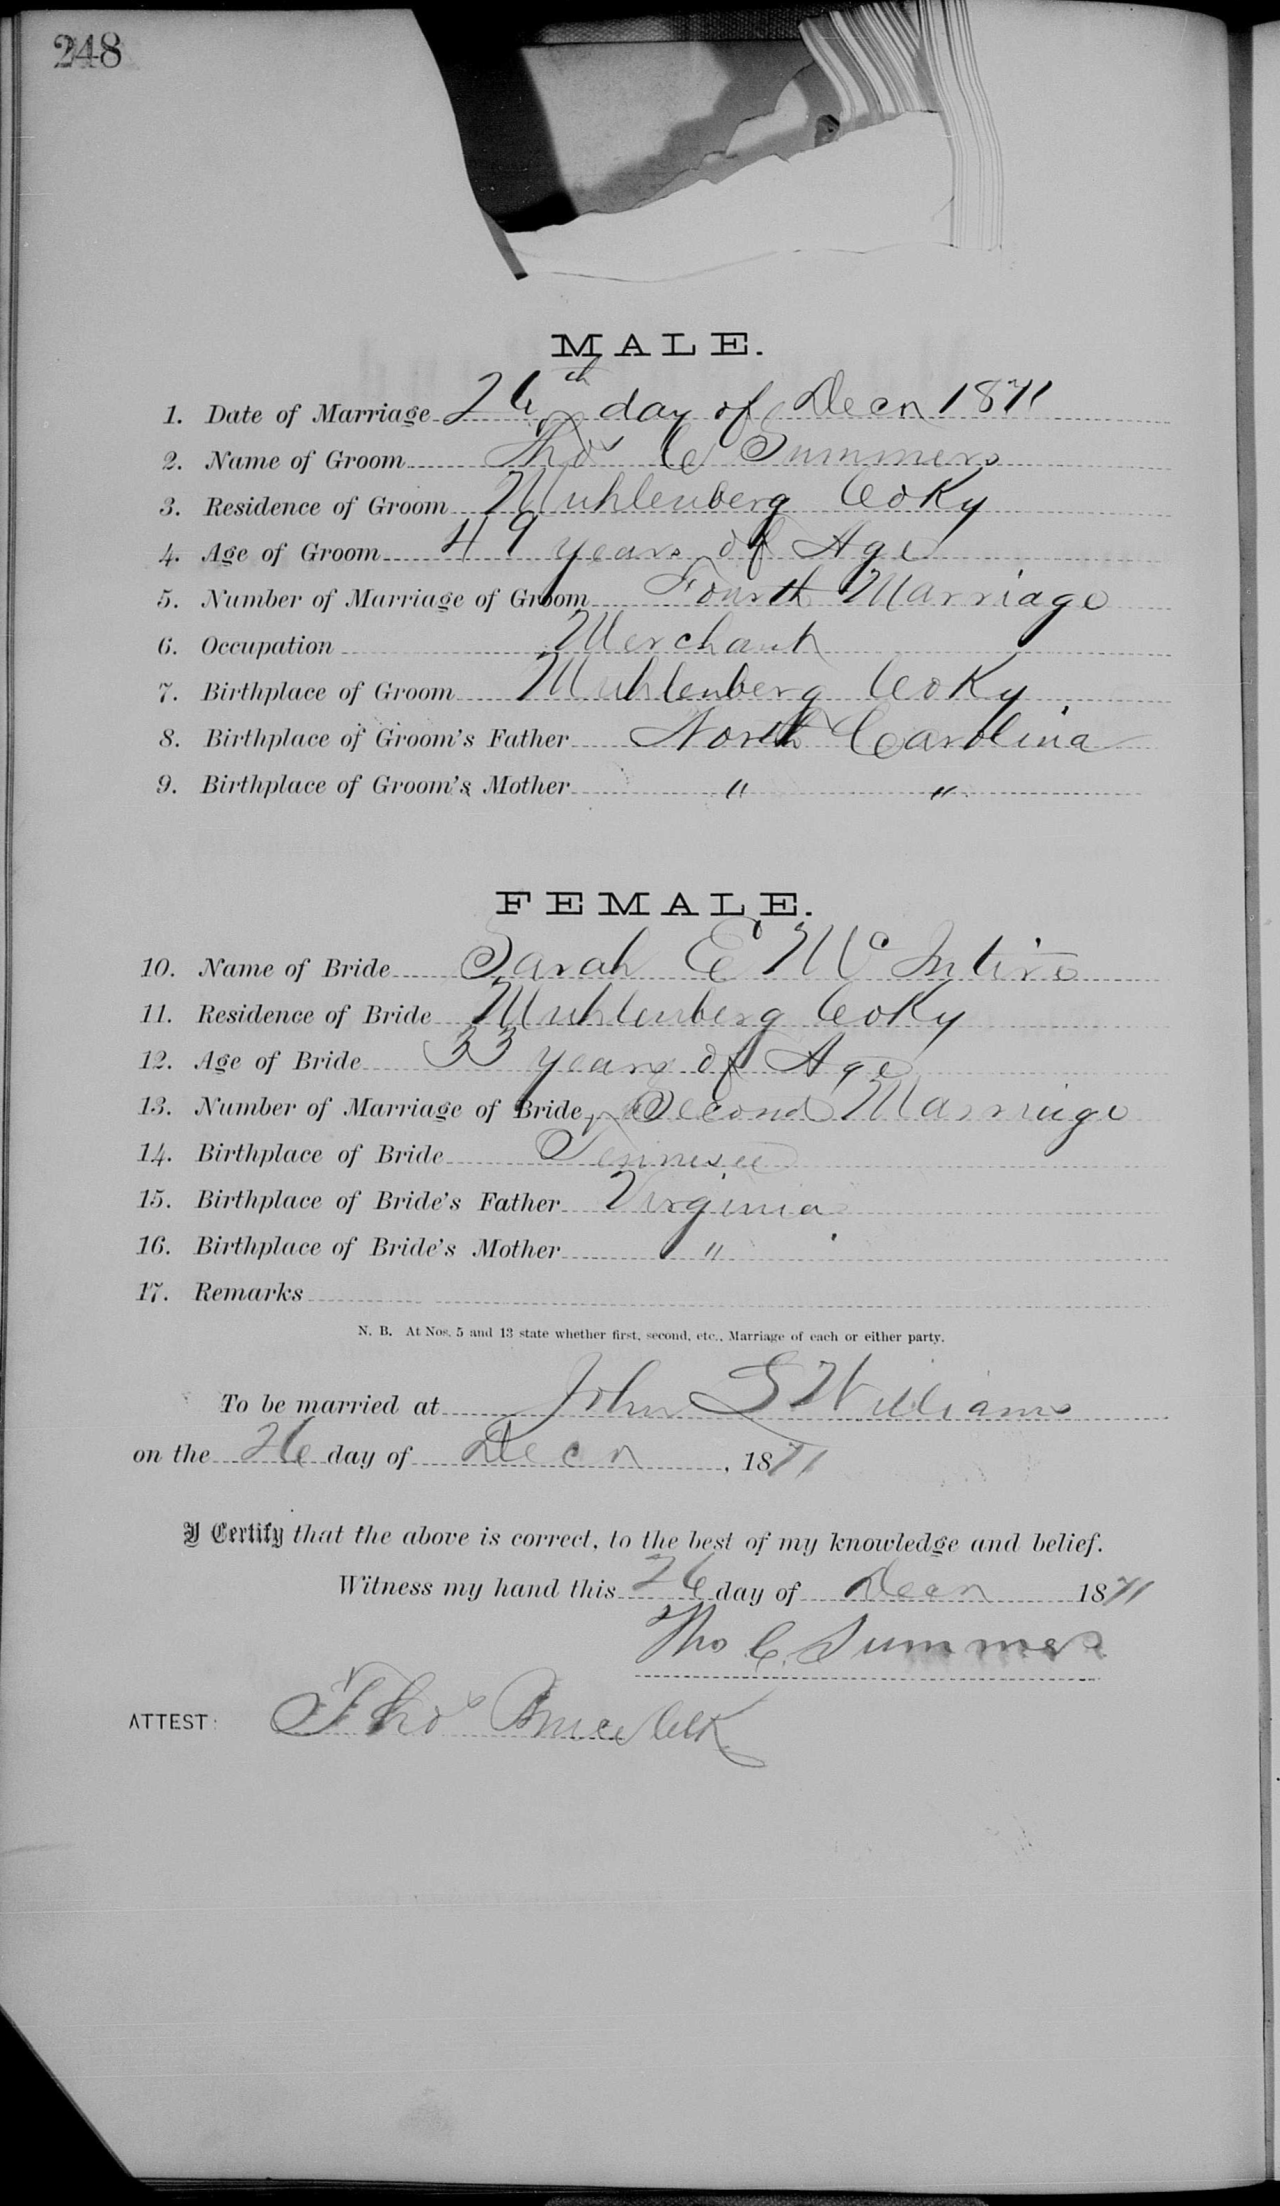 248
MALE.
1. Date of Marriage 26th day of Decr 1871
2. Name of Groom Thos C Summers
3. Residence of Groom Muhlenberg Co Ky
4. Age of Groom 49 years of Age
5. Number of Marriage of Groom Fourth Marriage
6. Occupation Merchant
7. Birthplace of Groom Muhlenberg Co Ky
8. Birthplace of Groom's Father North Carolina
9. Birthplace of Groom's Mother " "
FEMALE.
10. Name of Bride Sarah E McIntire
11. Residence of Bride Muhlenberg Co Ky
12. Age of Bride 33 years of Age
13. Number of Marriage of Bride Second Marriage
14. Birthplace of Bride Tennesee
15. Birthplace of Bride's Father Virginia
16. Birthplace of Bride's Mother "
17. Remarks
N. B. At Nos. 5 and 13 state whether first, second, etc., Marriage of each or either party.
To be married at John S Williams
on the 26 day of Decr, 1871
I Certify that the above is correct, to the best of my knowledge and belief.
Witness my hand this 26 day of Decr 1871
Tho C. Summers
ATTEST: Thos Bruce Clk